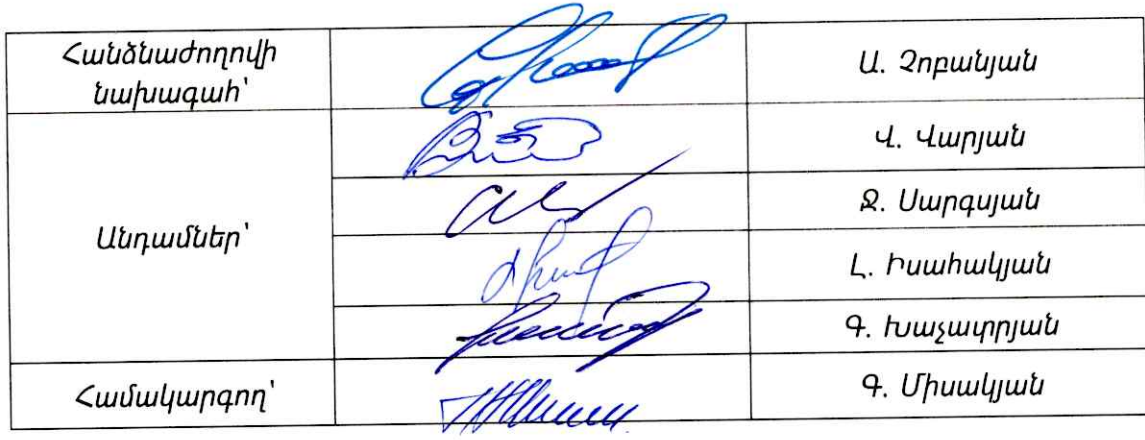 Հանձնաժողովի
նախագահ՝
Ա. Չոբանյան
Վ. Վարյան
Անդամներ՝
Ջ. Սարգսյան
Լ. Իսահակյան
Գ. Խաչատրյան
Համակարգող՝
Գ. Միսակյան